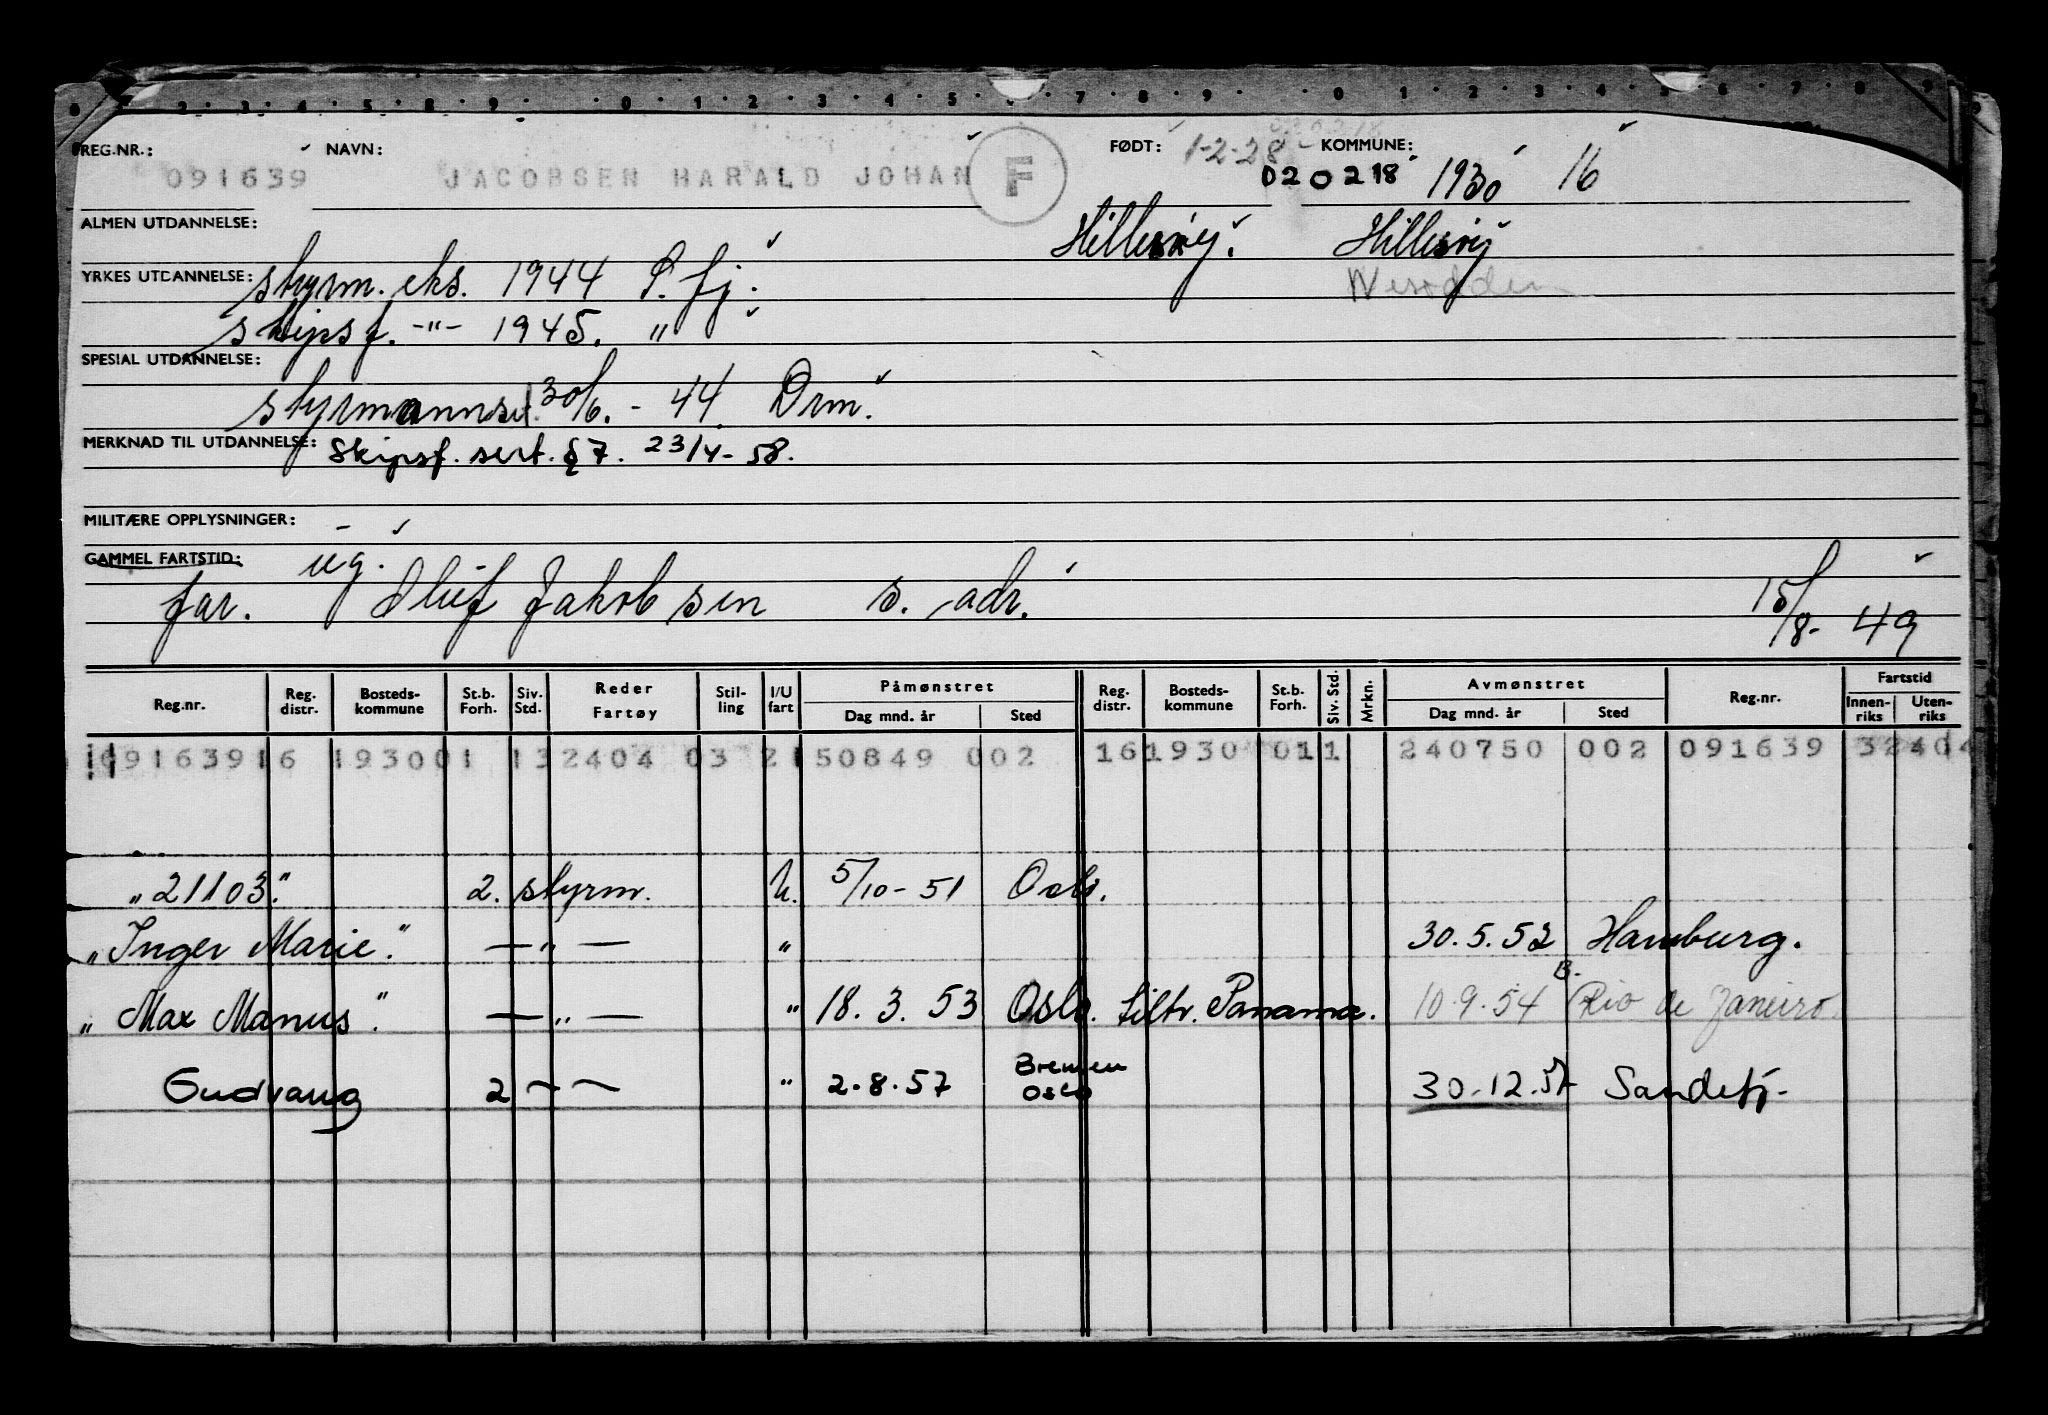 REG.NR.: NAVN: FØDT: 1-2-28 KOMMUNE:
091639 JACOBSEN HARALD JOHAN F 020218 1930 16
ALMEN UTDANNELSE: Hillesøy. Hillesøy
YRKES UTDANNELSE: styrm. eks. 1944 S. fj. Nesodden
skipsf. -"- 1945. "
SPESIAL UTDANNELSE:
30/6. - 44 Drm.
MERKNAD TIL UTDANNELSE: Skipsf. sert. § 7. 23/4-58.
MILITÆRE OPPLYSNINGER: -
GAMMEL FARTSTID: ug.
far. Oluf Jakobsen s. adr. 15/8- 49
Reg.nr. Reg. distr. Bosteds-kommune St.b. Forh. Siv. Std. Reder Fartøy Stil-ling I/U fart Påmønstret Dag mnd. år Sted Reg. distr. Bosteds-kommune St.b. Forh. Siv. Std. Mrkn. Avmønstret Dag mnd. år Sted Reg.nr. Fartstid Innen-riks Uten-riks
09163916 193001 132404 03 2150849 002 161930 011 240750 002 091639 32404
"21103." 2. styrm. U. 5/10-51 Oslo.
"Inger Marie." — " — " 30.5.52 Hamburg.
"Max Manus". — " — " 18. 3. 53 Oslo. tiltr. Panama. 10.9.54 B. Rio de Janeiro.
Gudvang 2 — — " 2.8.57 Bremen Oslo 30.12.57 Sandefj.